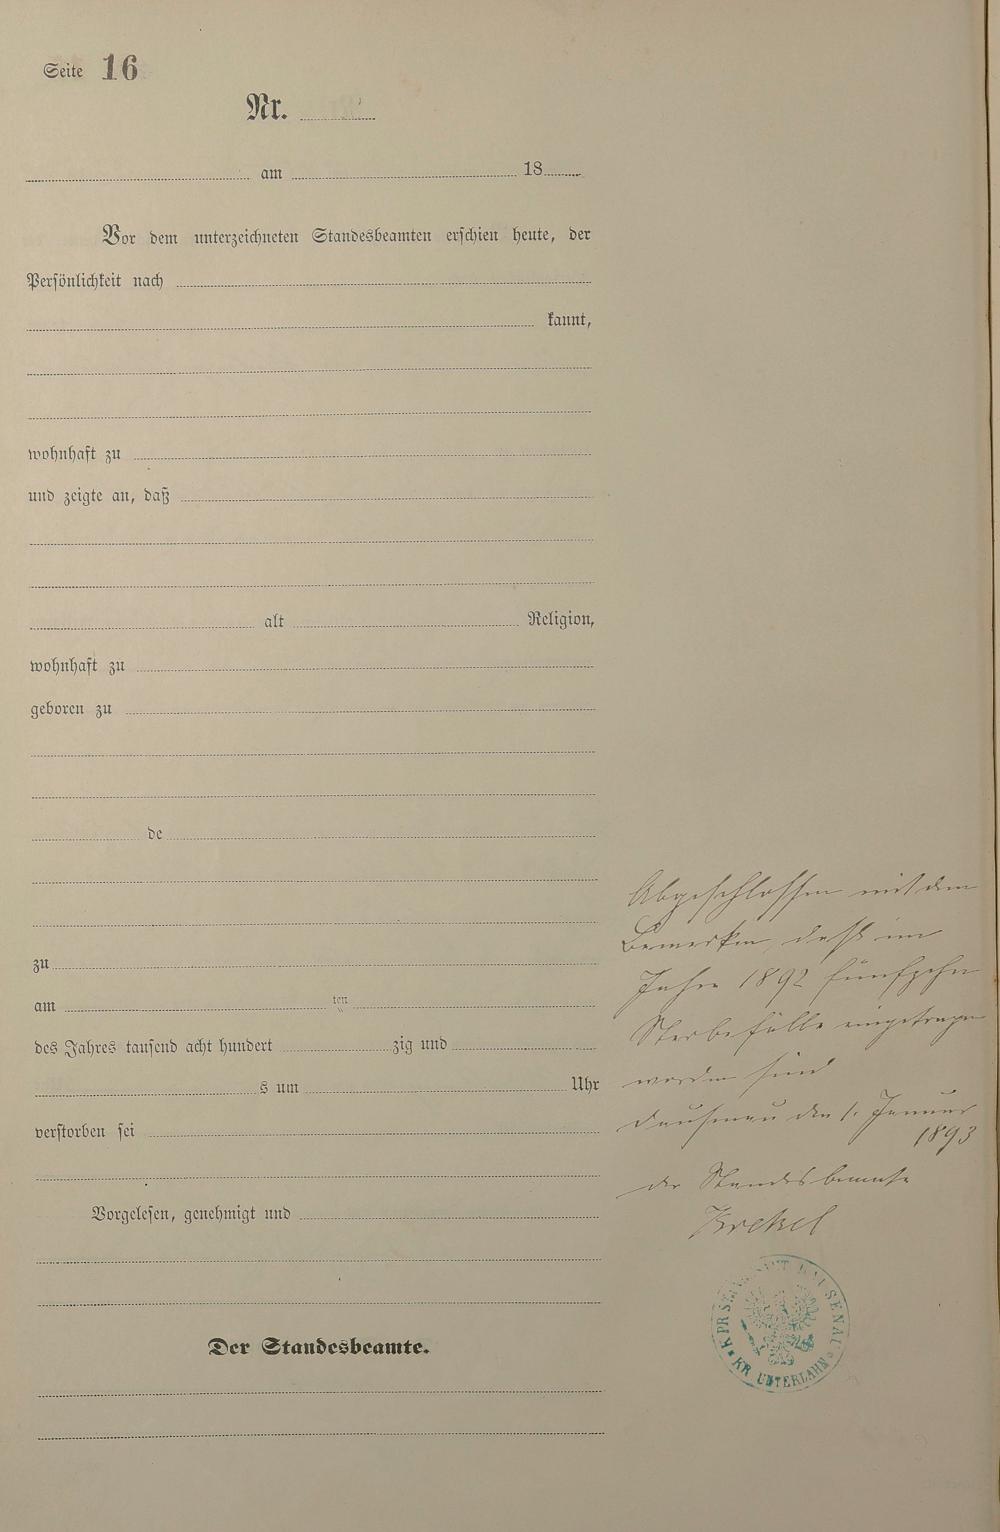 Seite 16
Nr.
am 18
Vor dem unterzeichneten Standesbeamten erschien heute, der
Persönlichkeit nach
kannt,
wohnhaft zu
und zeigte an, daß
alt Religion,
wohnhaft zu
geboren zu
de
zu
am ten
des Jahres tausend acht hundert zig und
s um Uhr
verstorben sei
Vorgelesen, genehmigt und
Der Standesbeamte.
Abgeschlossen mit dem
Bemerken, daß im
Jahre 1892 fünfzehn
Sterbefälle eingetragen
worden sind
Dausenau den 1. Januar
1893
der Standesbeamte
Krekel
K. PR. STANDESAMT DAUSENAU
KR UNTERLAHN